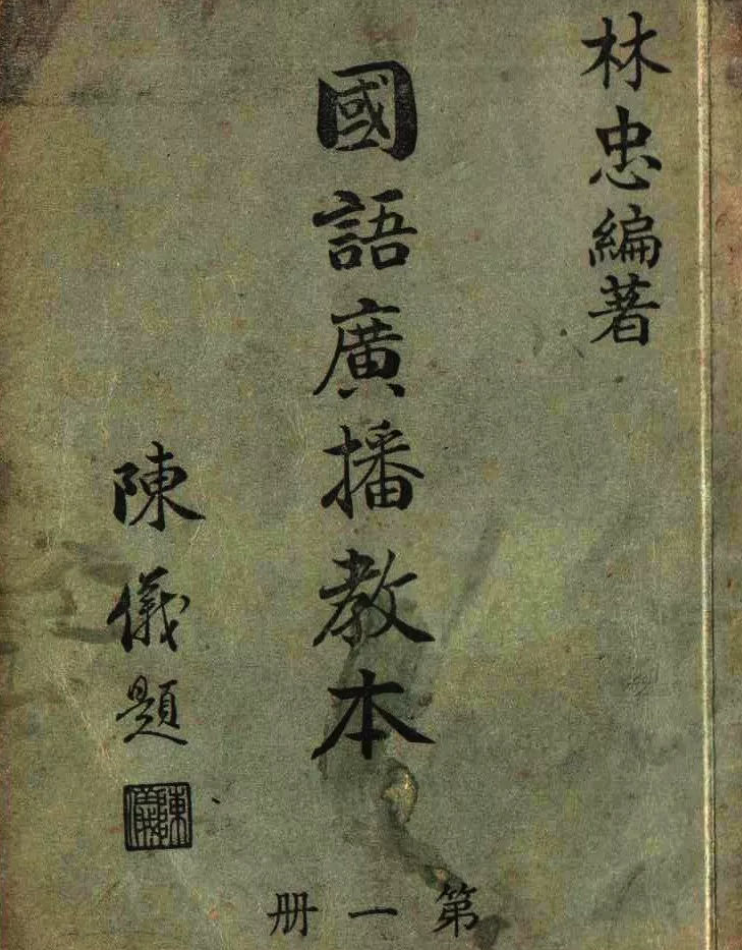 林忠編著
國語廣播教本
陳儀題
陳儀
第一册